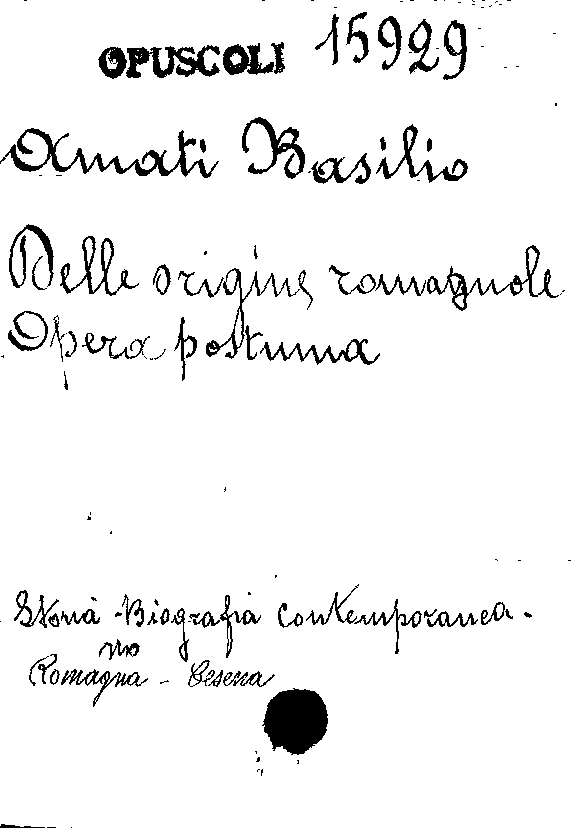 OPUSCOLI 15929
Amati Basilio
Delle origini romagnole
Opera postuma
Storia Biografia contemporanea.
Romagna - Cesena